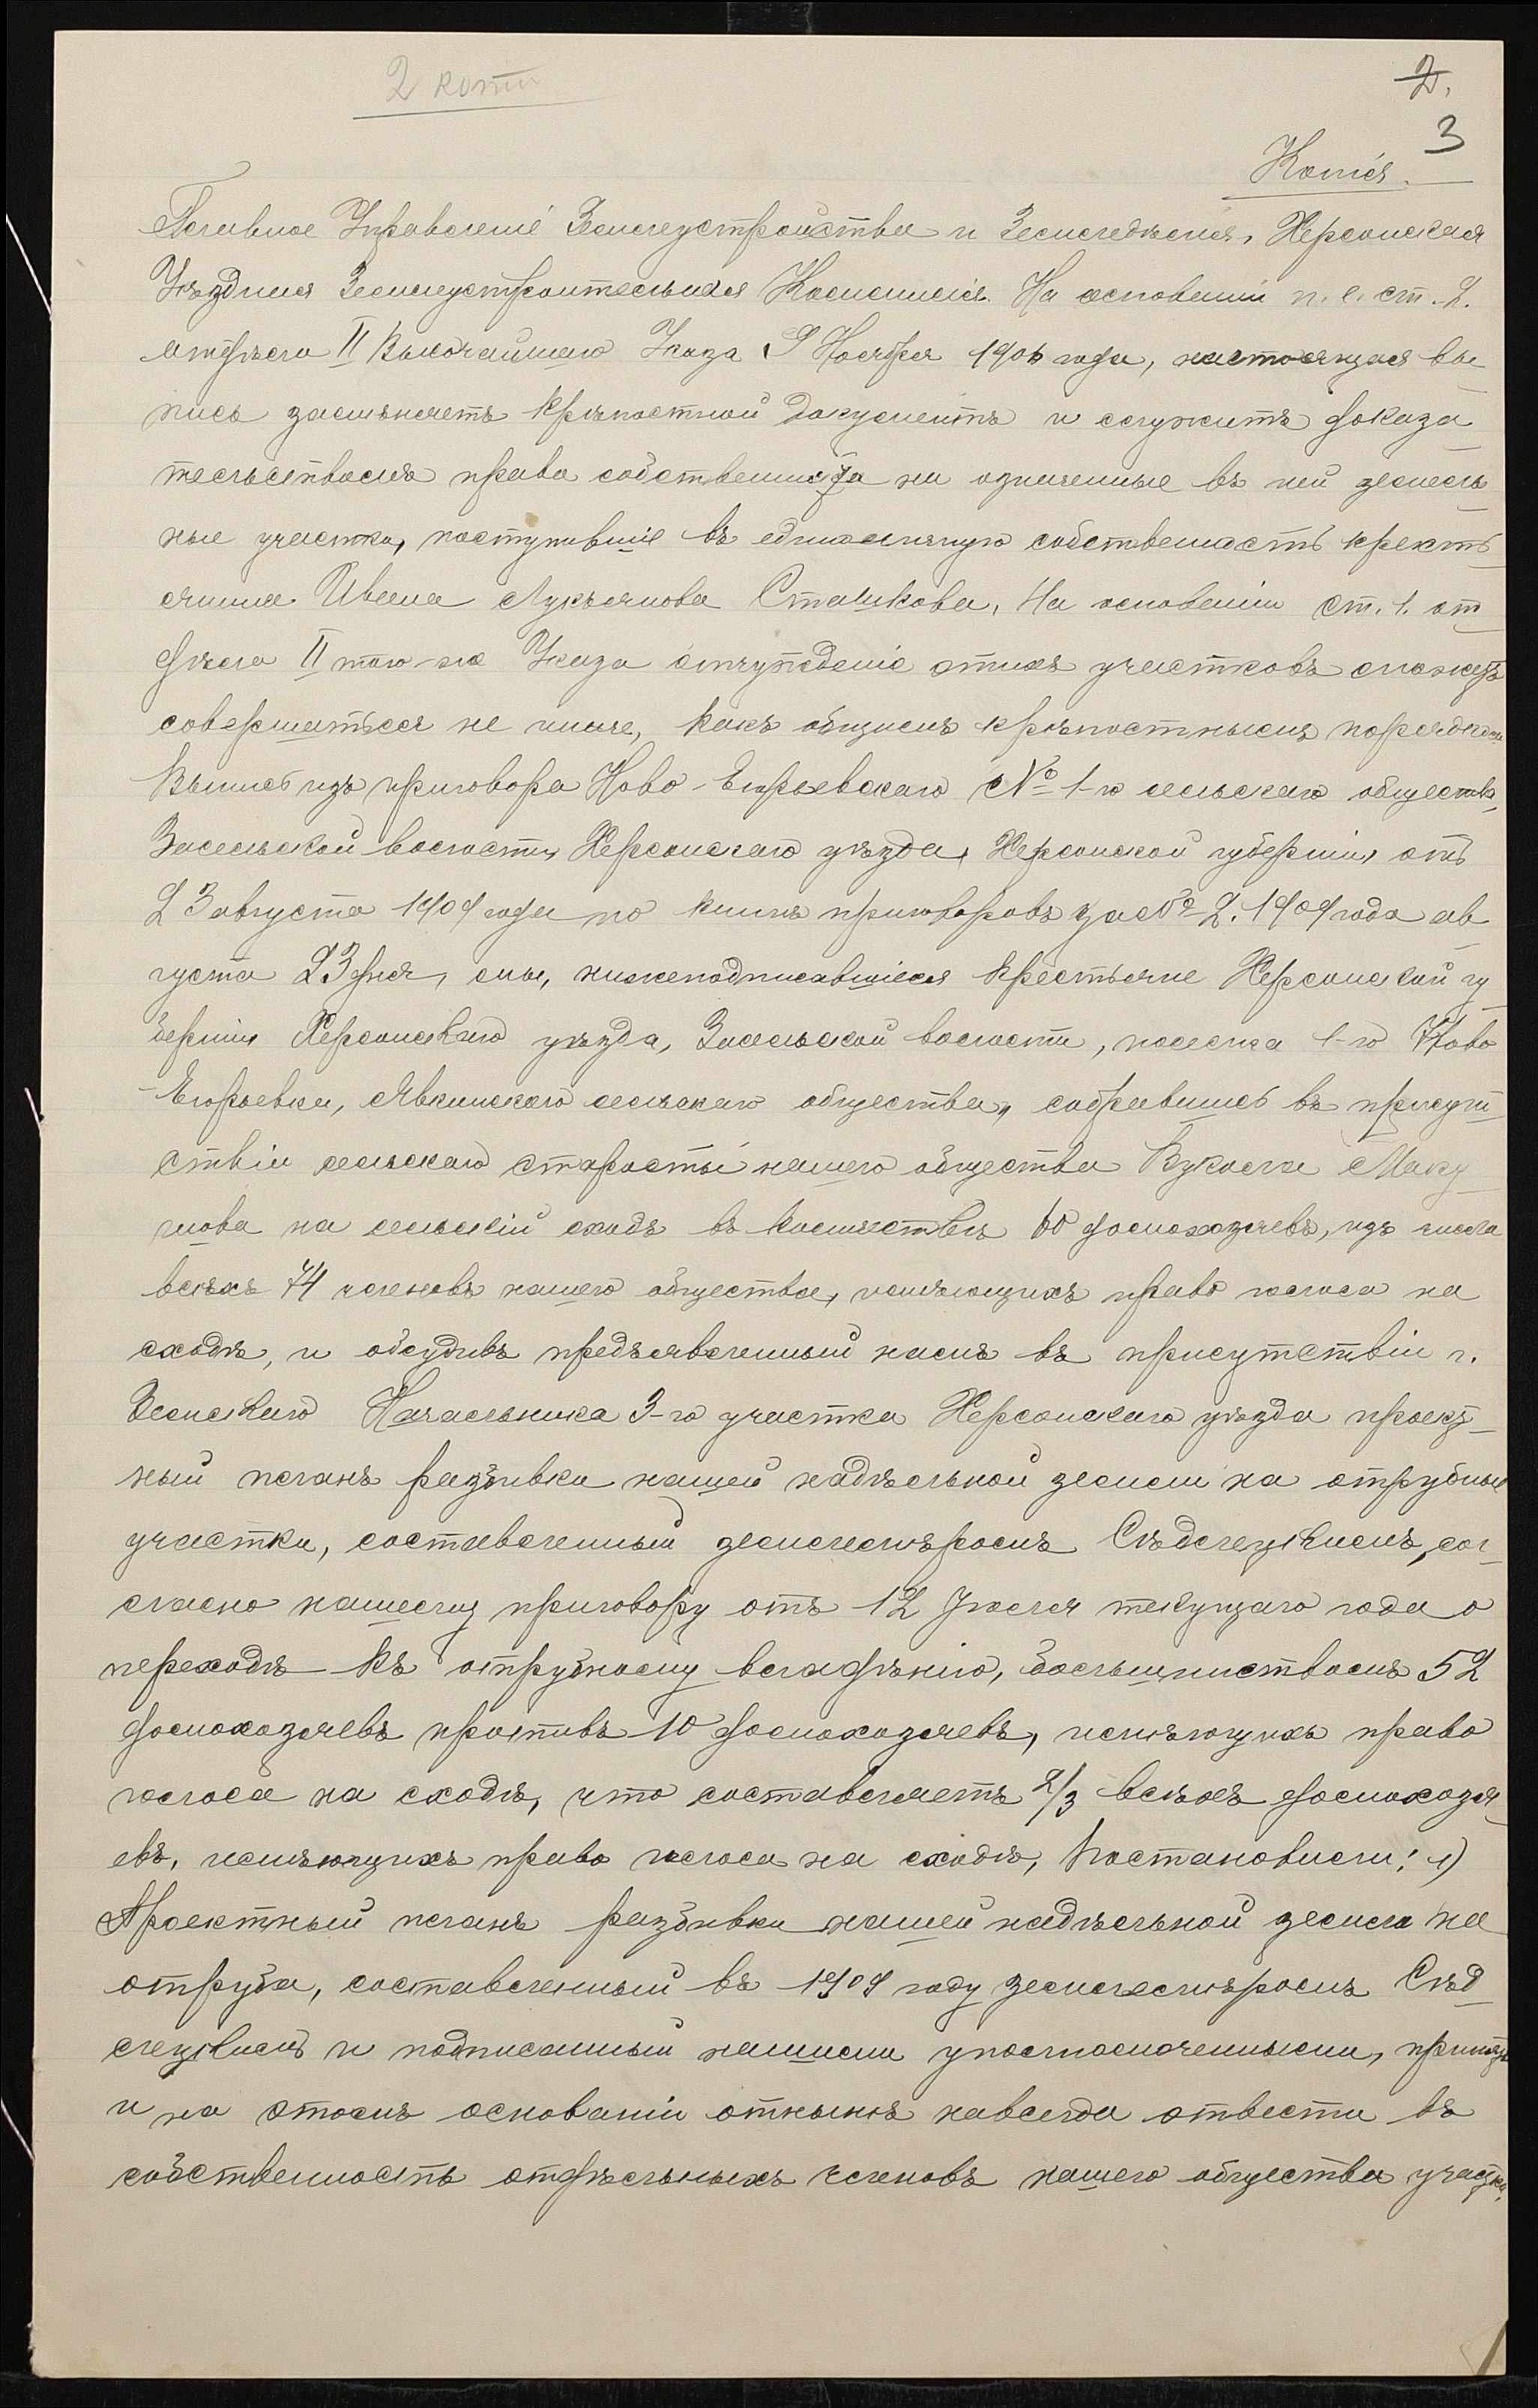 2 копи
2.
3
Копія.
Главное Управленіе Землеустройства и Земледѣлія, Херсонская
Уѣздная Землеустроительная Коммиссія. На основаніи п. е. ст. 2.
отдѣла II Высочайшаго Указа 9 Ноября 1906 года, настоящая вы
пись замѣняетъ крѣпостной документъ и служитъ доказа
тельствомъ права собственника на означенные въ ней земель
ные участки, поступившіе въ единоличную собственность кресть
янина Ивана Лукьянова Сташкова, На основаніи ст. 1. от
дѣла II того-же Указа отчужденіе этихъ участковъ можетъ
совершаться не иначе, какъ общимъ крѣпостнымъ порядкомъ
Выпись изъ приговора Ново-Егорьевскаго № 1-го сельскаго общества,
Засельской волости, Херсонскаго уѣзда, Херсонской губерніи, отъ
23 августа 1909 года по книгѣ приговоровъ за № 2. 1909 года ав
густа 23 дня, мы, нижеподписавшіеся крестьяне Херсонской гу
берніи Херсонскаго уѣзда, Засельской волости, поселка 1-го Ново
-Егорьевки, Явкинскаго сельскаго общества, собравшись въ присут
ствіи сельскаго старосты нашего общества Вукола
на сельскій сходъ въ количествѣ 60 домохозяевъ, изъ числа
всѣхъ 74 членовъ нашего общества, имѣющихъ право голоса на
сходѣ, и обсудивъ предъявленный намъ въ присутствіи г.
Земскаго Начальника 3-го участка Херсонскаго уѣзда проект-
ный планъ разбивки нашей надѣльной земли на отрубные
участки, составленный землемѣромъ Сѣдлецкимъ, сог-
ласно нашему приговору отъ 12 Іюля текущаго года о
переходѣ къ отрубному владѣнію, большинствомъ 52
домохозяевъ противъ 10 домохозяевъ, имѣющихъ право
голоса на сходѣ, что составляетъ 2/3 всѣхъ домохозя
евъ, имѣющихъ право голоса на сходѣ, постановили: 1)
Проектный планъ разбивки нашей надѣльной земли на
отруба, составленный въ 1909 году землемѣромъ Сѣд
лецкимъ и подписанный нашими уполномоченными, принять
и на этомъ основаніи отнынѣ навсегда отвести въ
собственность отдѣльныхъ членовъ нашего общества участки,